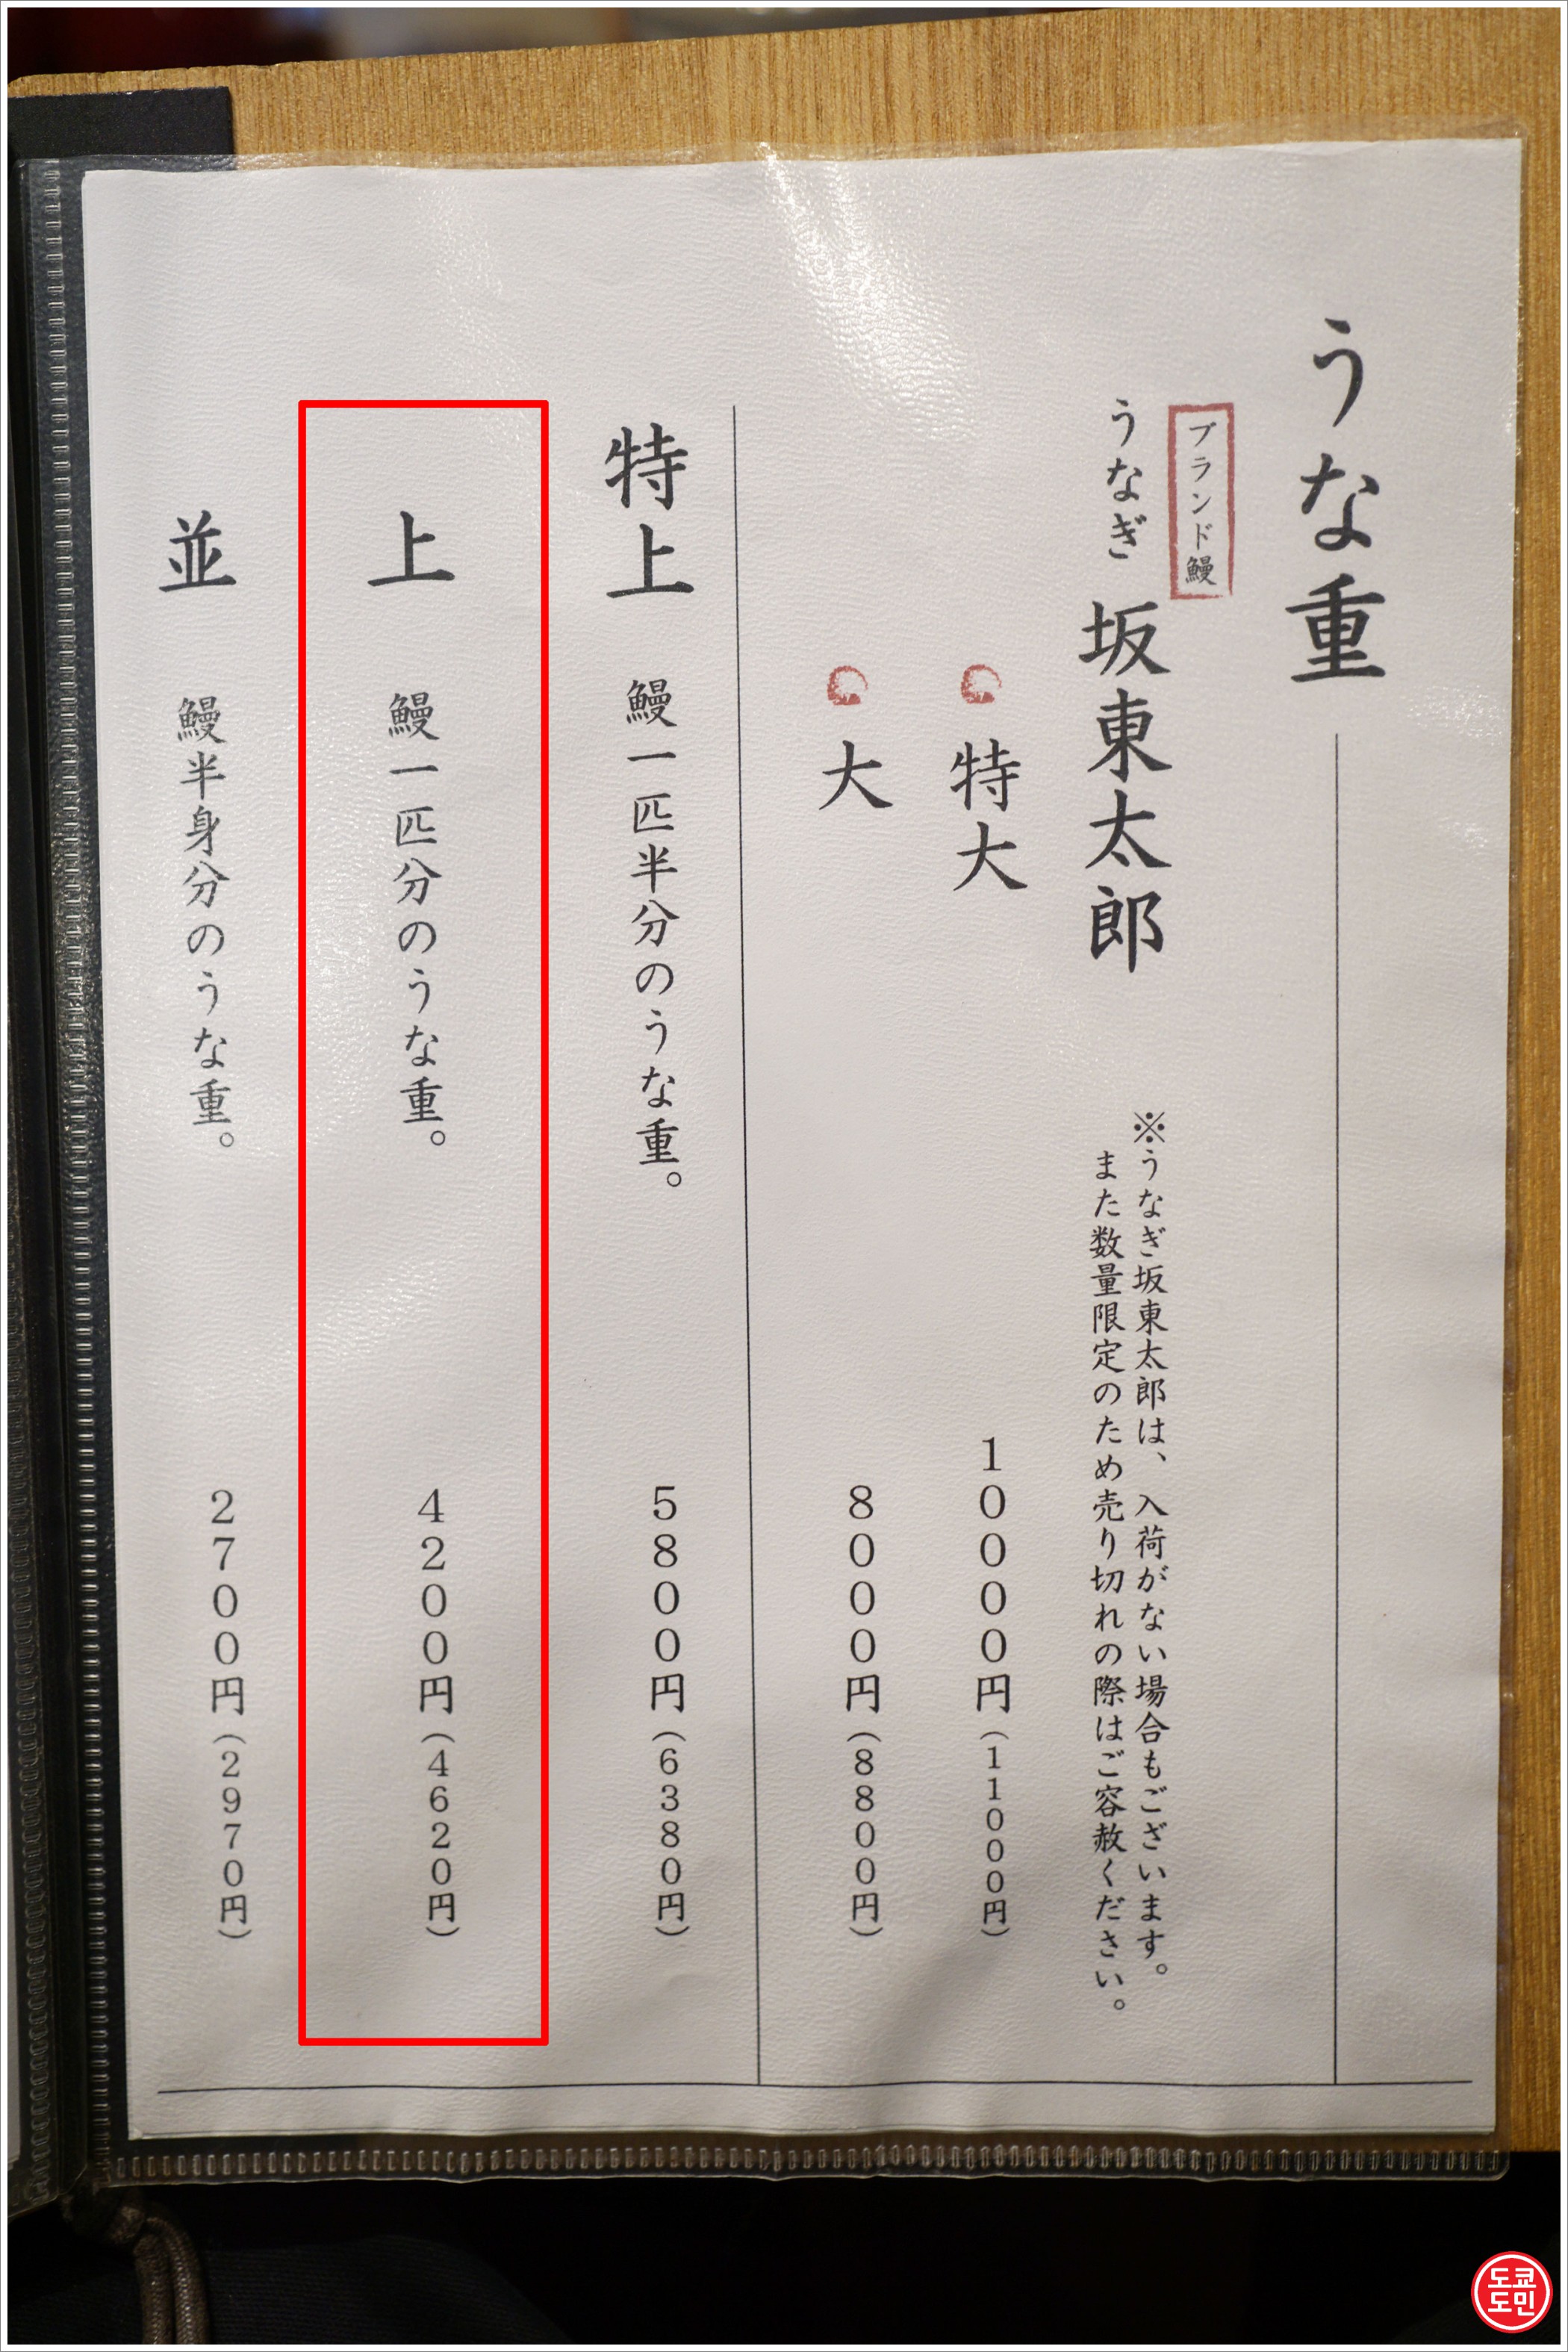 うな重
ブランド鰻
うなぎ 坂東太郎
※うなぎ坂東太郎は、入荷がない場合もございます。
また数量限定のため売り切れの際はご容赦ください。
特大 10000円(11000円)
大 8000円(8800円)
特上 鰻一匹半分のうな重。 5800円(6380円)
上 鰻一匹分のうな重。 4200円(4620円)
並 鰻半身分のうな重。 2700円(2970円)
도쿄
도민